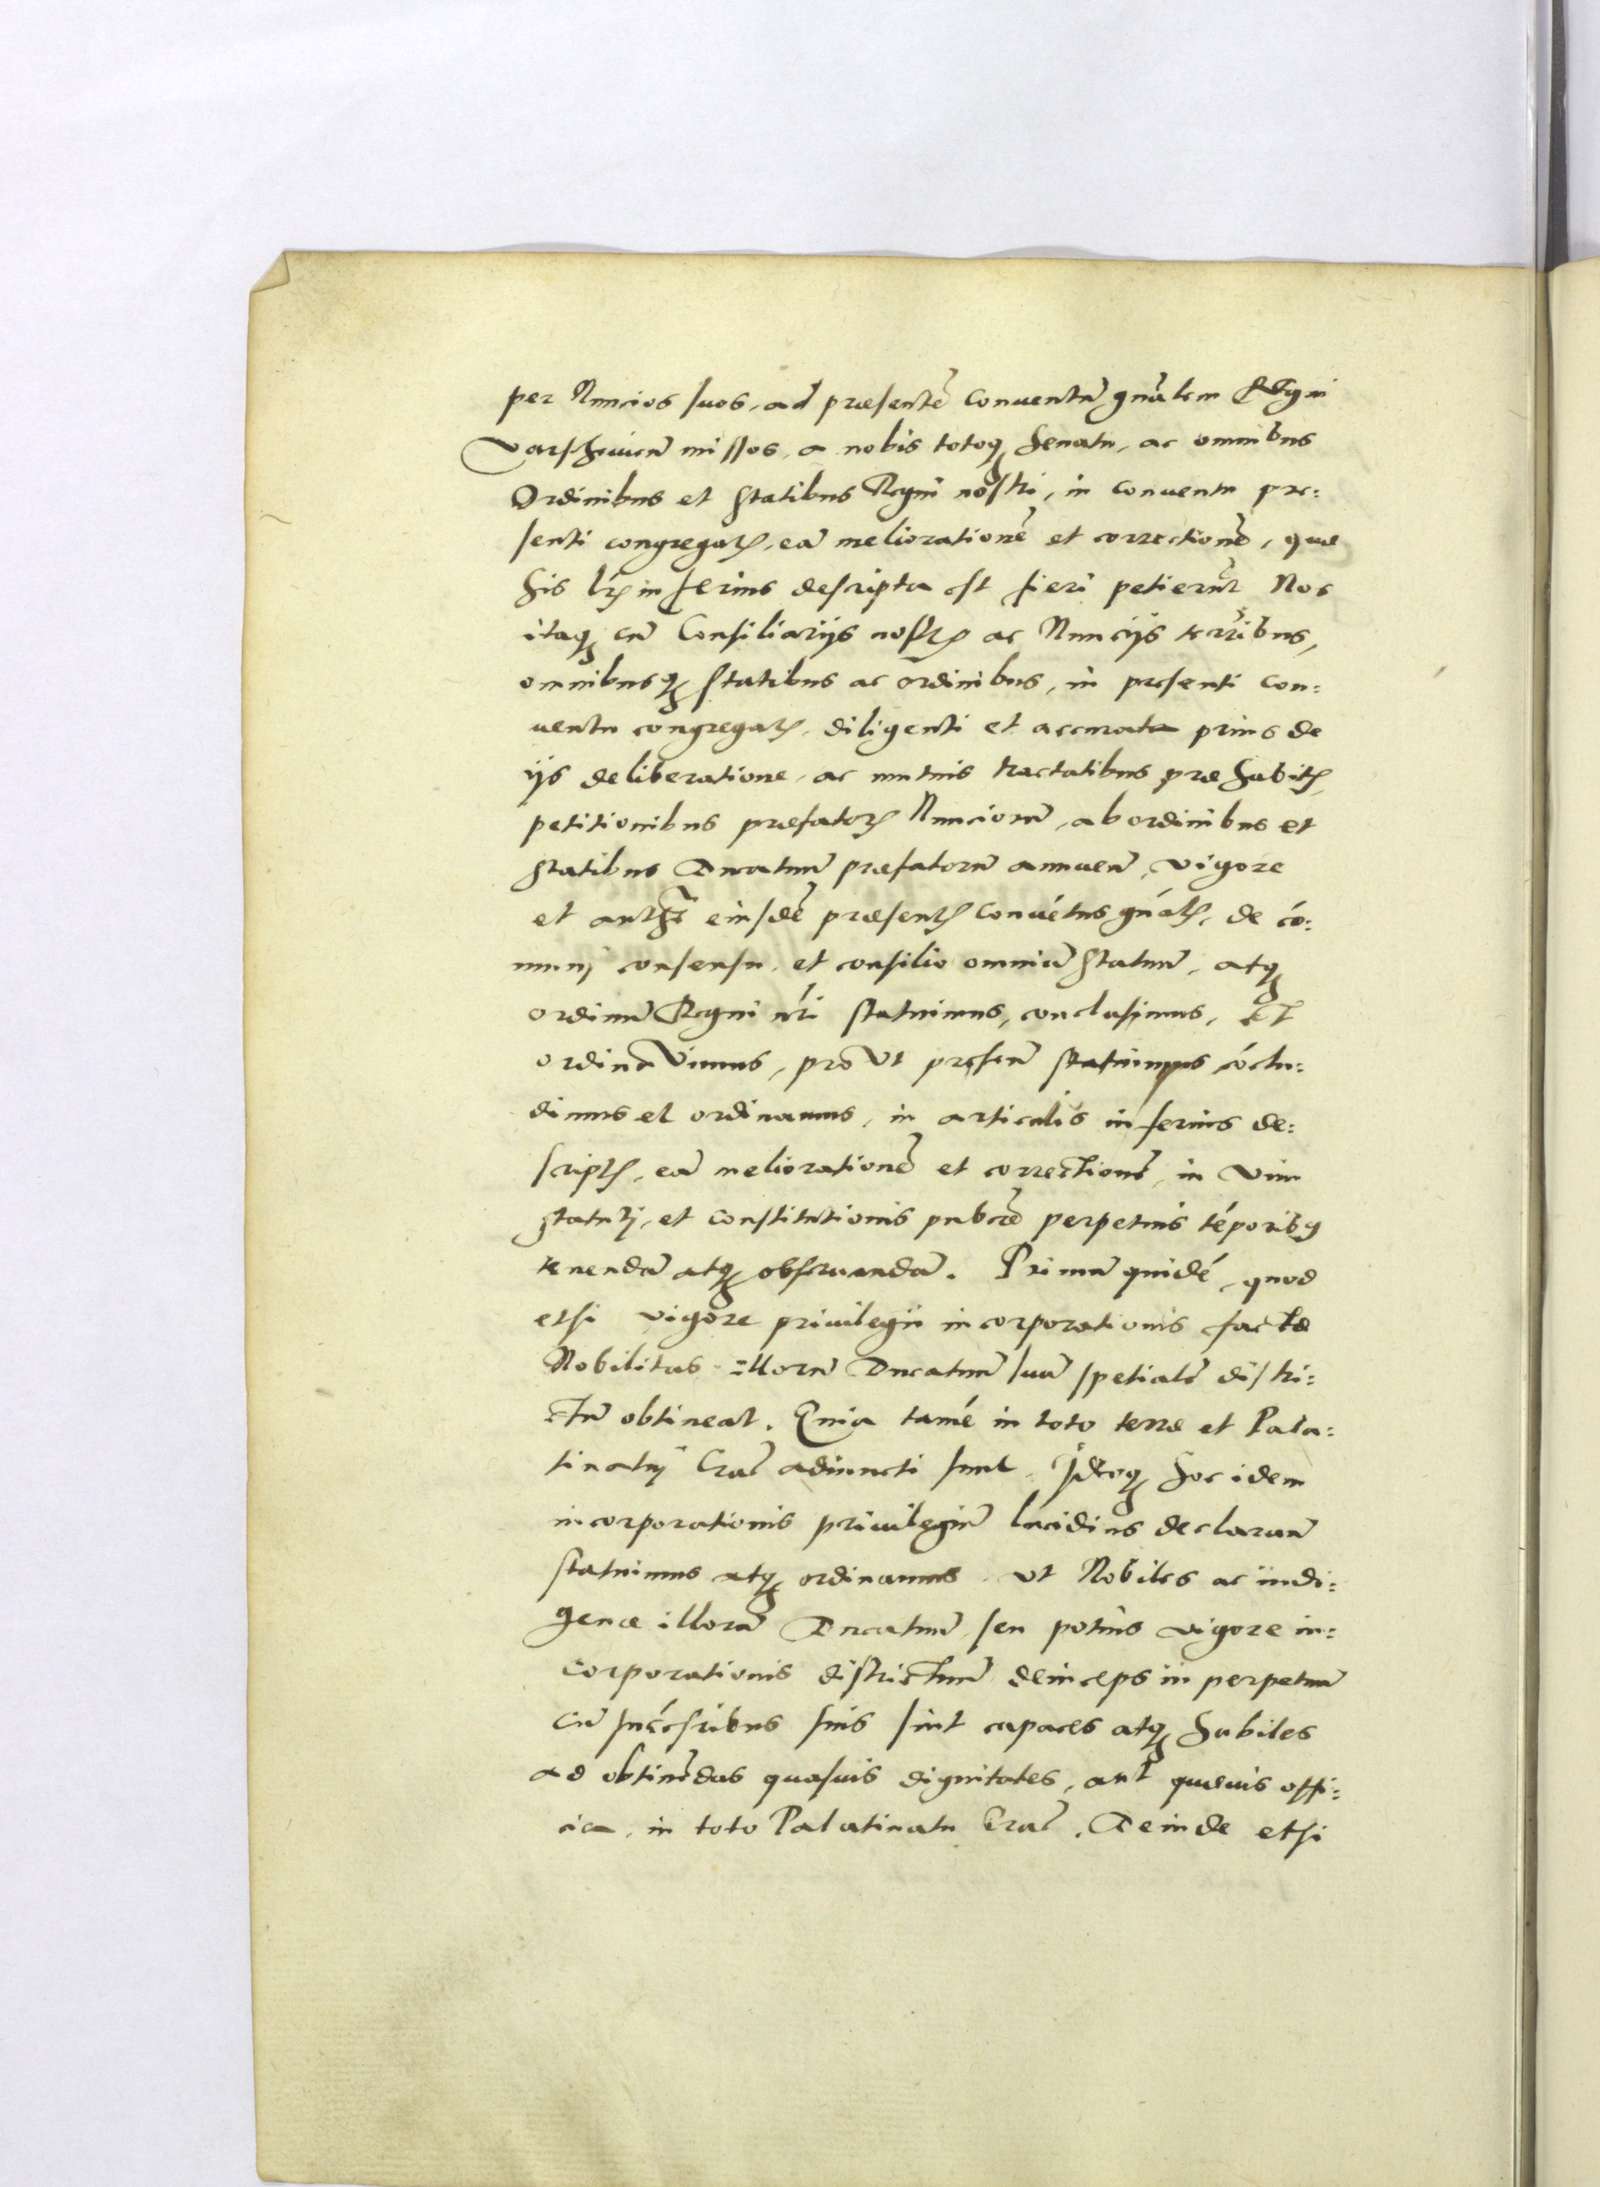 per Nuncios suos, ad præsentē Conuentū gnālem Regni
Varschouien̄ missos, a nobis totoq; Senatu, ac omnibus
Ordinibus et Statibus Regni nostri, in conuentu pre:
senti congregatꝭ, eā meliorationē et correctionē, quæ
his lrꝭ inferius descripta est fieri petierūt Nos
itaq; cū Consiliarijs nostrꝭ ac Nuncijs terrībus,
omnibusq; statibus ac ordinibus, in presenti con:
uentu congregatꝭ, diligenti et accurata prius de
ijs deliberatione, ac mutuis tractatibus præhabitꝭ,
petitionibus præfatorꝭ Nunciorū, ab ordinibus et
statibus Ducatuū præfatorū annuen̄, vigore
et autht̄e eiusdē præsentꝭ Conuētus gnālꝭ, de cō:
munj consensu, et consilio omniū Statuū, atq;
ordinū Regni nr̄i statuimus, conclusimus, Et
ordinaVimus, proVt presen̄ statuimus cōclu:
dimus et ordinamus, in articulis inferius de:
scriptꝭ, eā meliorationē et correctionē, in vim
statutj, et constitutionis publcǣ perpetuis tēporibq
tenendā atq; obseruandā. Primū quidē, quod
etsi vigore priuilegii incorporationis factæ
Nobilitas illorū Ducatuū suū spetialē distri:
ctū obtineat. Quia tamē in toto terræ et Pala:
tinatuj Craē adiuncti sunt. Ideoq; hoc idem
incorporationis priuilegiū lucidius declaran̄
statuimus atq; ordinamus, vt Nobiles ac indi:
genæ illorū Ducatuū, seu potius vigore in:
corporationis districtuū deinceps in perpetuū
cū succēsribus suis sint capaces atq; habiles
ad obtinēdas quasuis dignitates, aut quæuis offi:
cia, in toto Palatinatu Craē. Deinde etsi